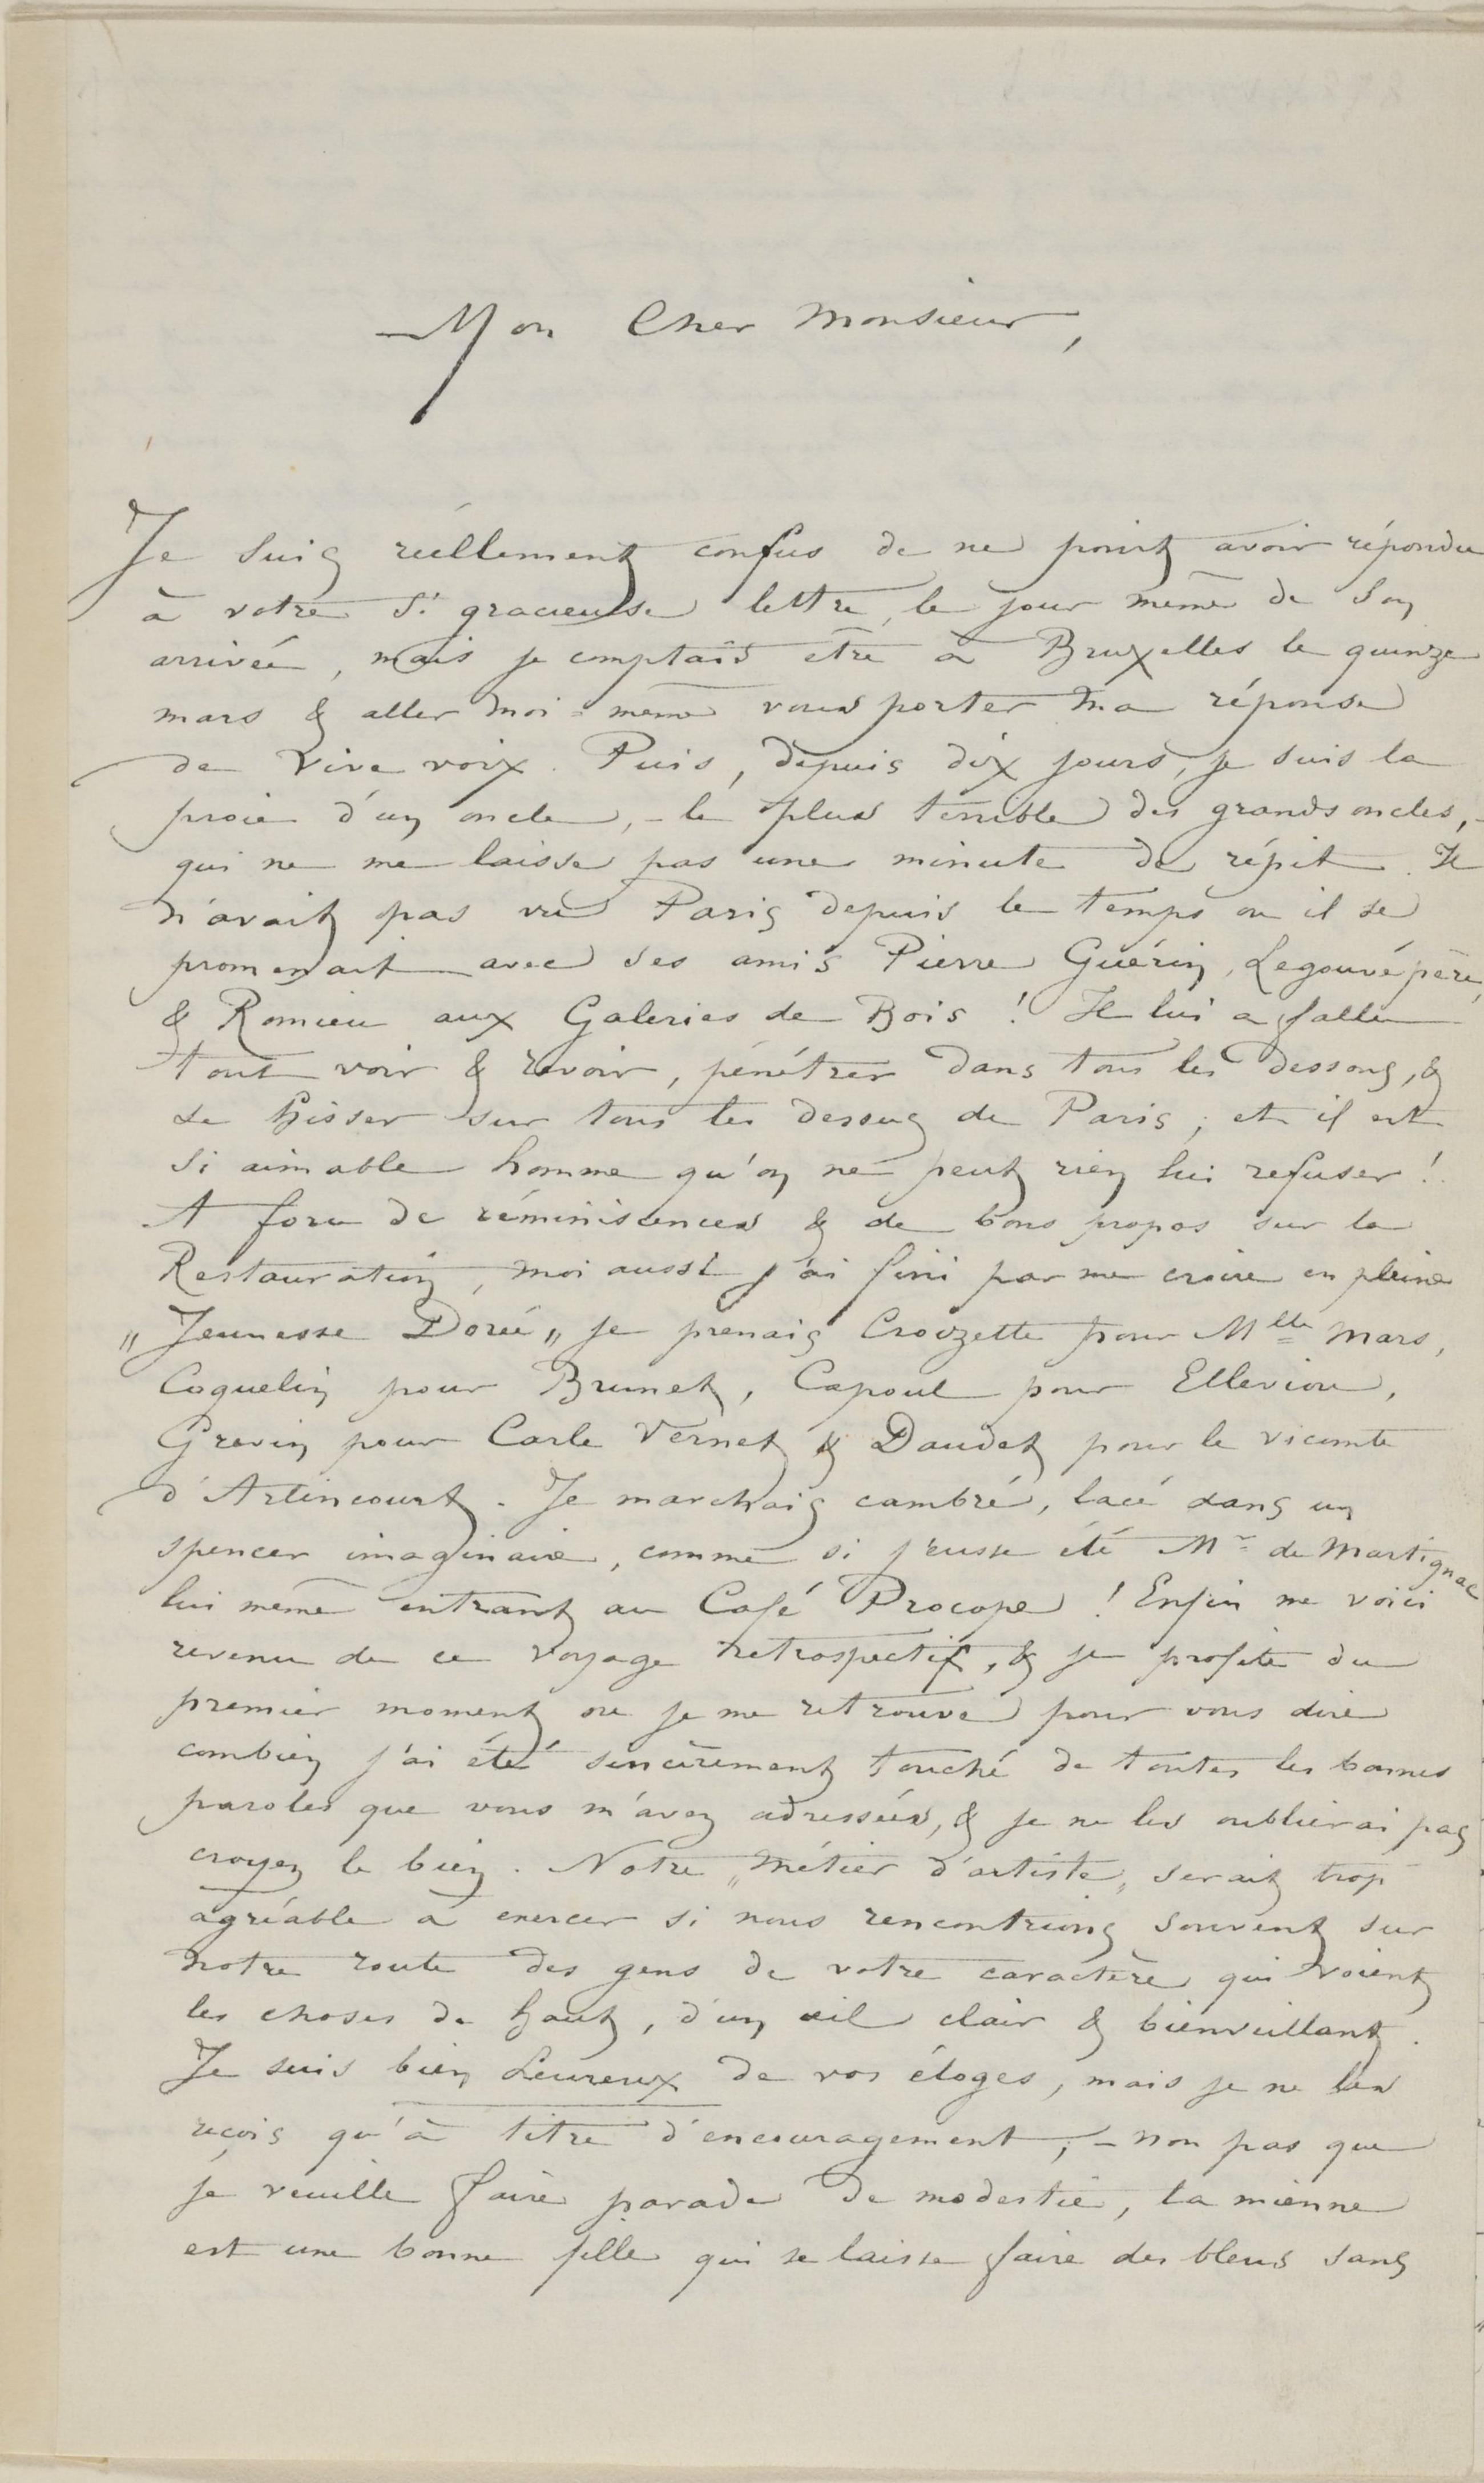 Mon Cher Monsieur,
Je suis réellement confus de ne point avoir répondu
à votre si gracieuse lettre, le jour même de son
arrivée, mais je comptais être à Bruxelles le quinze
mars & aller moi-même vous porter ma réponse
de vive voix. Puis, depuis dix jours, je suis la
proie d'un oncle, - le plus terrible des grands oncles, -
qui ne me laisse pas une minute de répit. Il
n'avait pas vu Paris depuis le temps ou il se
promenait avec ses amis Pierre Guérin, Legouvé père,
& Romieu aux Galeries de Bois ! Il lui a fallu
tout voir & revoir, pénétrer dans tous les dessous, &
se hisser sur tous les dessus de Paris ; et il est
si aimable homme qu'on ne peut rien lui refuser !
A force de réminiscences & de bons propos sur la
Restauration, moi aussi j'ai fini par me croire en pleine
„ Jeunesse Dorée „ je prenais Croizette pour Mlle Mars,
Coquelin pour Brunet, Capoul pour Elleviou,
Grevin pour Carle Vernet & Daudet pour le vicomte
d'Arlincourt. Je marchais cambré, lacé dans un
spencer imaginaire, comme si j'eusse été Mr de Martignac
lui même entrant au Café Procope ! Enfin me voici
revenu de ce voyage retrospectif, & je profite du
premier moment ou je me retrouve pour vous dire
combien j'ai été sincèrement touché de toutes les bonnes
paroles que vous m'avez adressées, & je ne les oublierai pas
croyez le bien. Notre „ métier d'artiste „ serait trop
agréable à exercer si nous rencontrions souvent sur
notre route des gens de votre caractère qui voient
les choses de haut, d'un œil clair & bienveillant.
Je suis bien heureux de vos éloges, mais je ne les
reçois qu'à titre d'encouragement, - non pas que
je veuille faire parade de modestie, la mienne
est une bonne fille qui se laisse faire des bleus sans